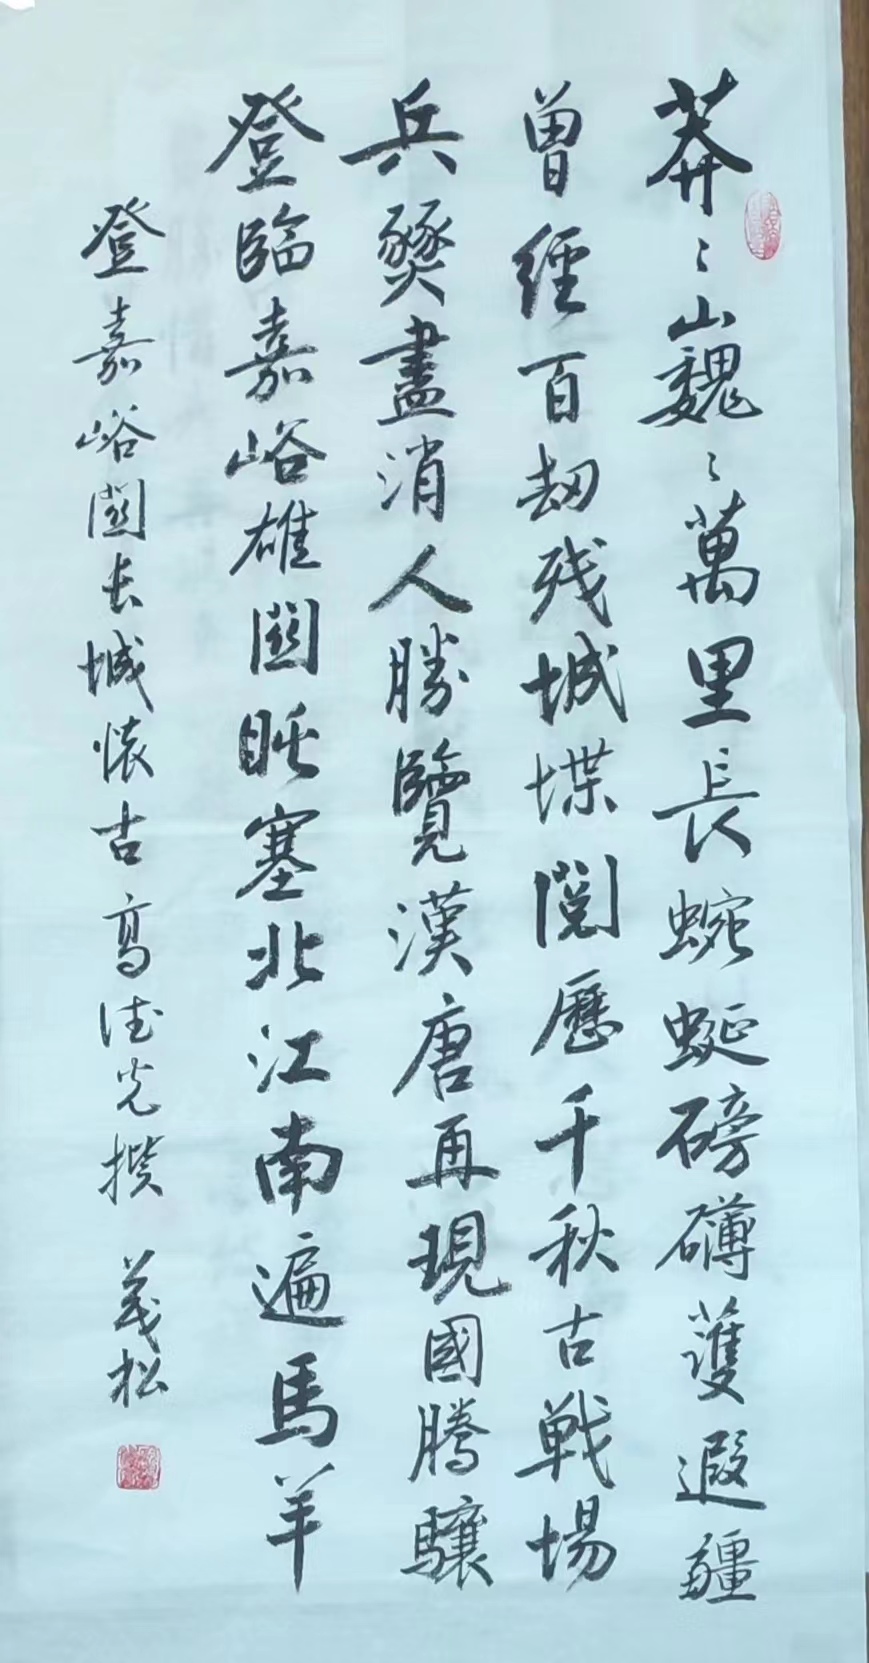 莽〻山巍〻萬里長蜿蜒磅礴護遐疆
曾經百劫残城堞閲歷千秋古戦場
兵燹盡消人勝覽漢唐再現國騰驤
登臨嘉峪雄關眺塞北江南遍馬羊
登嘉峪關长城懐古高德光撰 義松